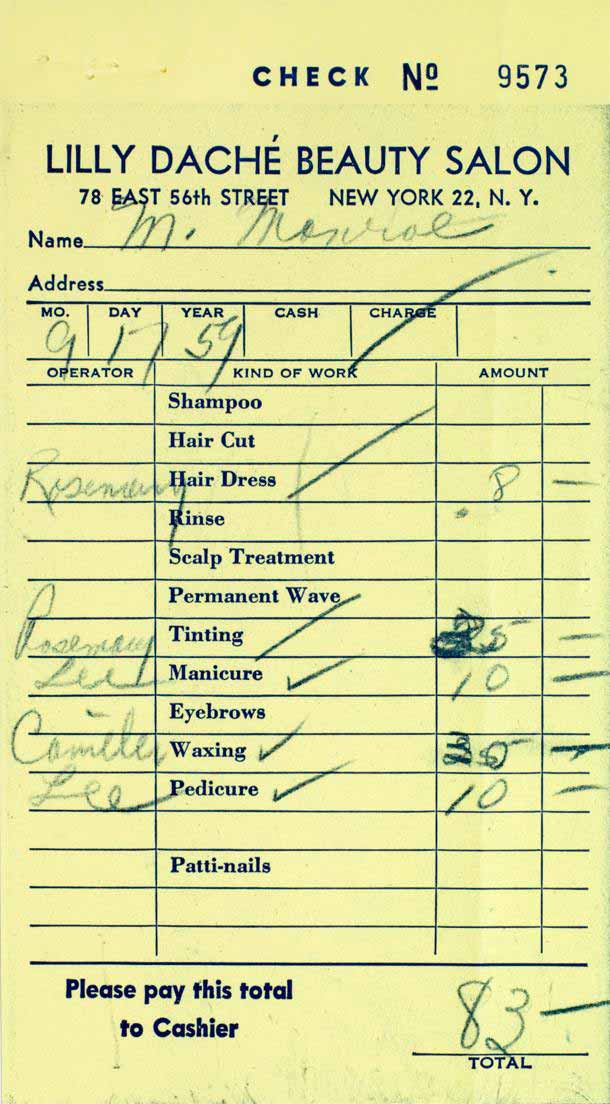 CHECK Nº 9573
LILLY DACHÉ BEAUTY SALON
78 EAST 56th STREET NEW YORK 22, N. Y.
Name M. Monroe
Address
MO. DAY YEAR CASH CHARGE
9 17 59
OPERATOR KIND OF WORK AMOUNT
Shampoo
Hair Cut
Rosemary Hair Dress 8 —
Rinse
Scalp Treatment
Permanent Wave
Rosemary Tinting 5 —
Lee Manicure 10 —
Eyebrows
Waxing 5 —
Lee Pedicure 10 —
Patti-nails
Please pay this total
to Cashier
83 —
TOTAL